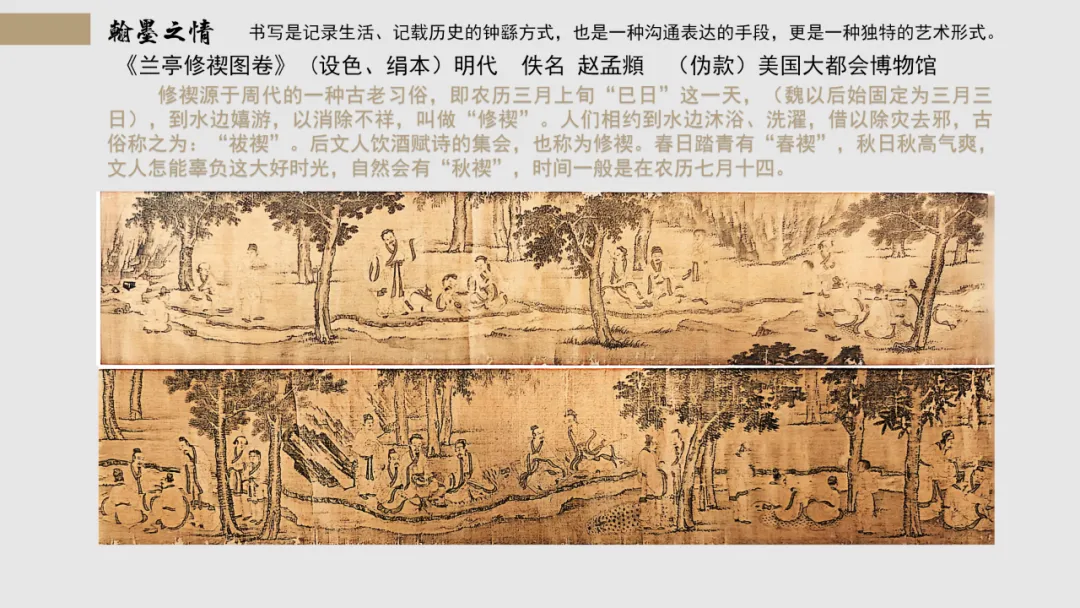 翰墨之情 书写是记录生活、记载历史的钟繇方式，也是一种沟通表达的手段，更是一种独特的艺术形式。
《兰亭修禊图卷》（设色、绢本）明代 佚名 赵孟頫 （伪款）美国大都会博物馆
修禊源于周代的一种古老习俗，即农历三月上旬“巳日”这一天，（魏以后始固定为三月三
日），到水边嬉游，以消除不祥，叫做“修禊”。人们相约到水边沐浴、洗濯，借以除灾去邪，古
俗称之为：“祓禊”。后文人饮酒赋诗的集会，也称为修禊。春日踏青有“春禊”，秋日秋高气爽，
文人怎能辜负这大好时光，自然会有“秋禊”，时间一般是在农历七月十四。